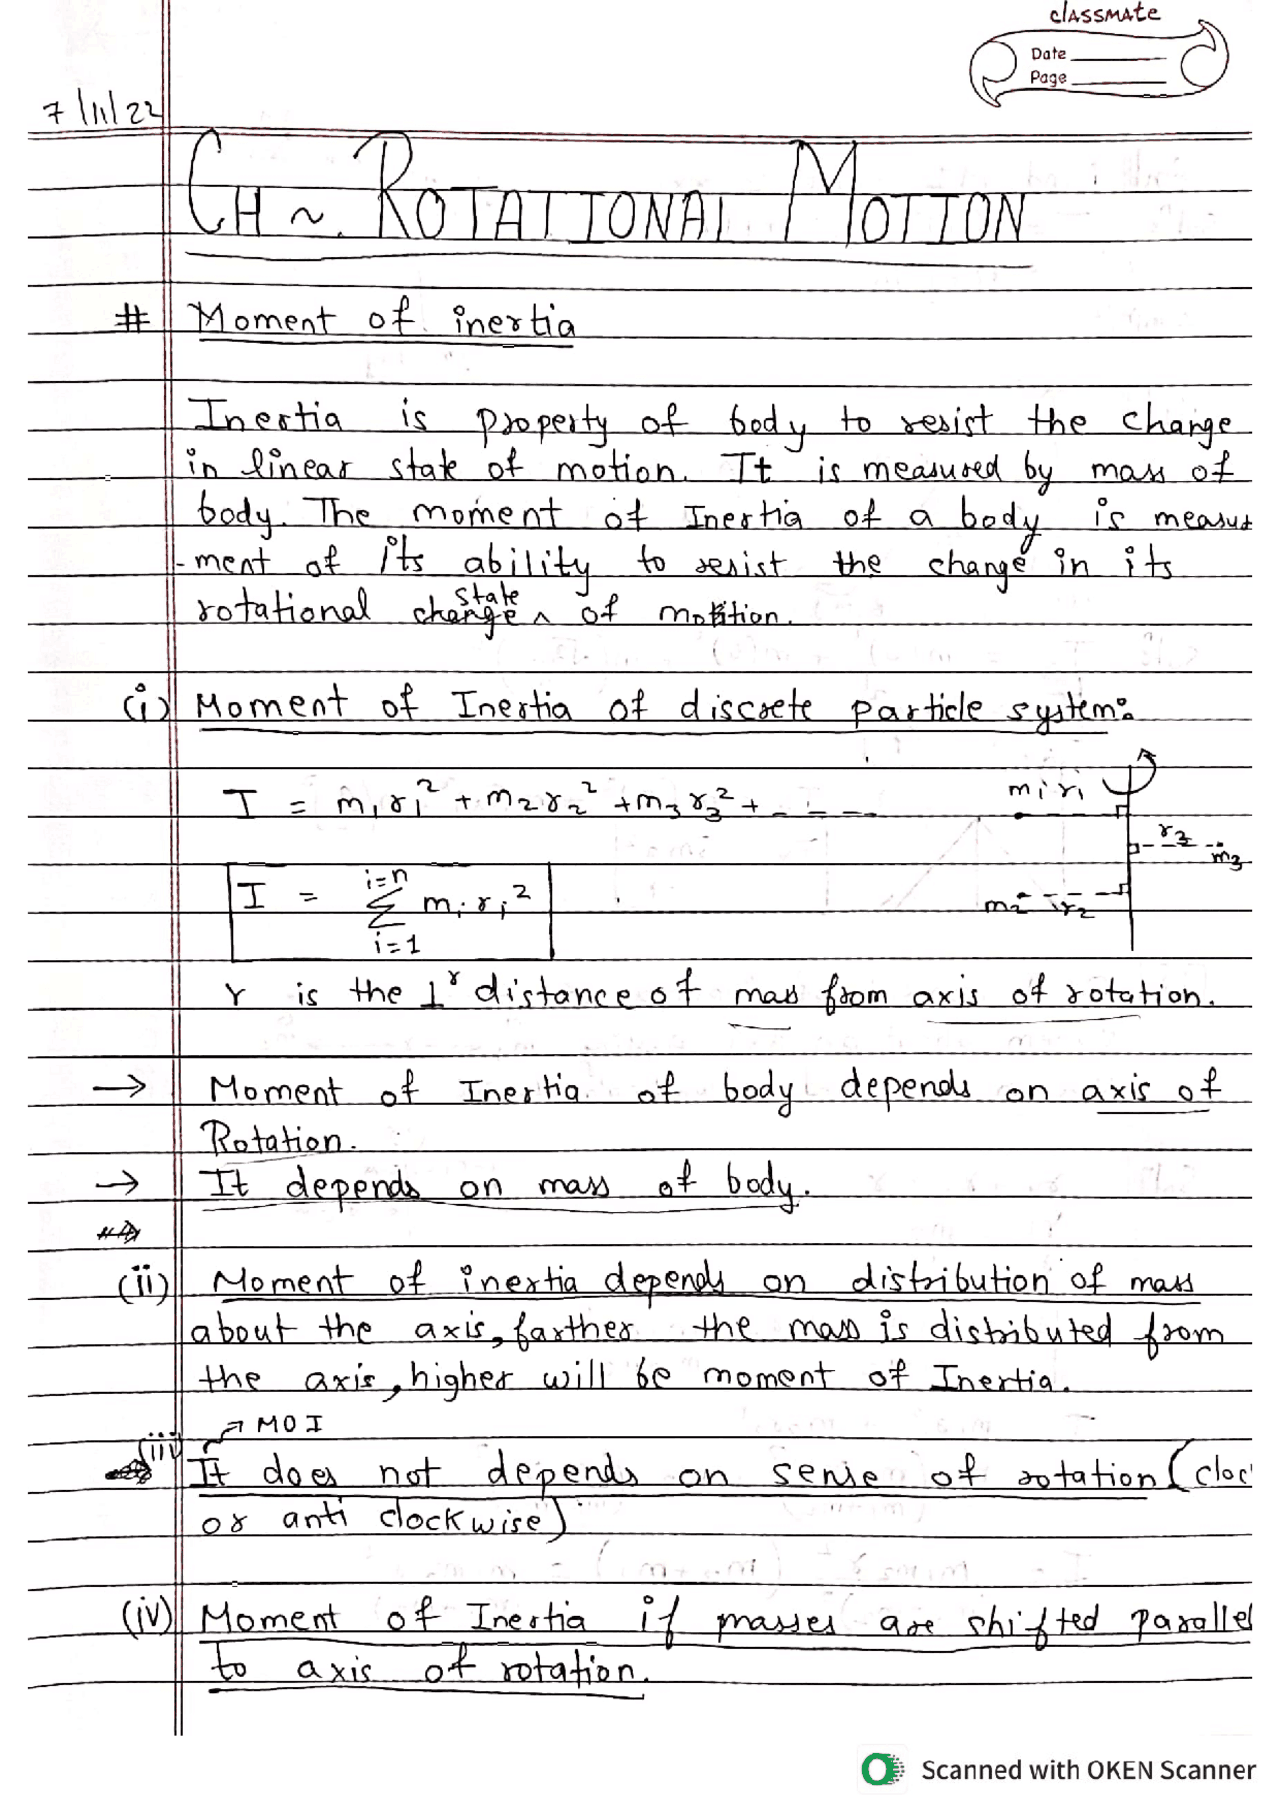 classmate
Date
Page
7/11/22
CH ~ ROTATIONAL MOTION
# Moment of inertia
Inertia is property of body to resist the change
in linear state of motion. It is measured by mass of
body. The moment of Inertia of a body is measur
-ment of its ability to resist the change in its
rotational change state of motion.
(i) Moment of Inertia of discrete particle system:
I = m₁r₁² + m₂r₂² + m₃r₃² + - - - -
m₁ r₁
r₃ m₃
I = Σ mᵢrᵢ²
i=n
i=1
m₂ r₂
r is the ⊥ʳ distance of mass from axis of rotation.
→ Moment of Inertia of body depends on axis of
Rotation.
→ It depends on mass of body.
(ii) Moment of inertia depends on distribution of mass
about the axis, farther the mass is distributed from
the axis, higher will be moment of Inertia.
→ MOI
(iii) It does not depends on sense of rotation (cloc
or anti clockwise)
(iv) Moment of Inertia if masses are shifted parallel
to axis of rotation.
Scanned with OKEN Scanner